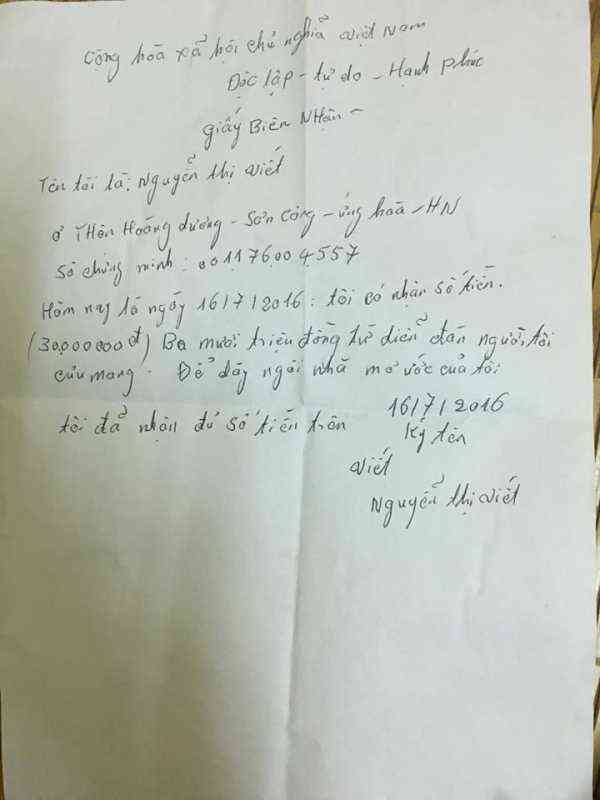 Cộng hòa xã hội chủ nghĩa Việt Nam
Độc lập - tự do - Hạnh phúc
Giấy Biên Nhận -
Tên tôi là: Nguyễn thị Viết
ở Thôn Hoàng dương - Sơn Công - ứng hoà - HN
Số chứng minh: 001176004557
Hôm nay là ngày 16/7/2016: tôi có nhận số tiền.
(30,000000đ) Ba mươi triệu đồng từ diễn đàn người tôi
cưu mang. Để xây ngôi nhà mơ ước của tôi
16/7/2016
tôi đã nhận đủ số tiền trên
Ký tên
Viết
Nguyễn thị Viết